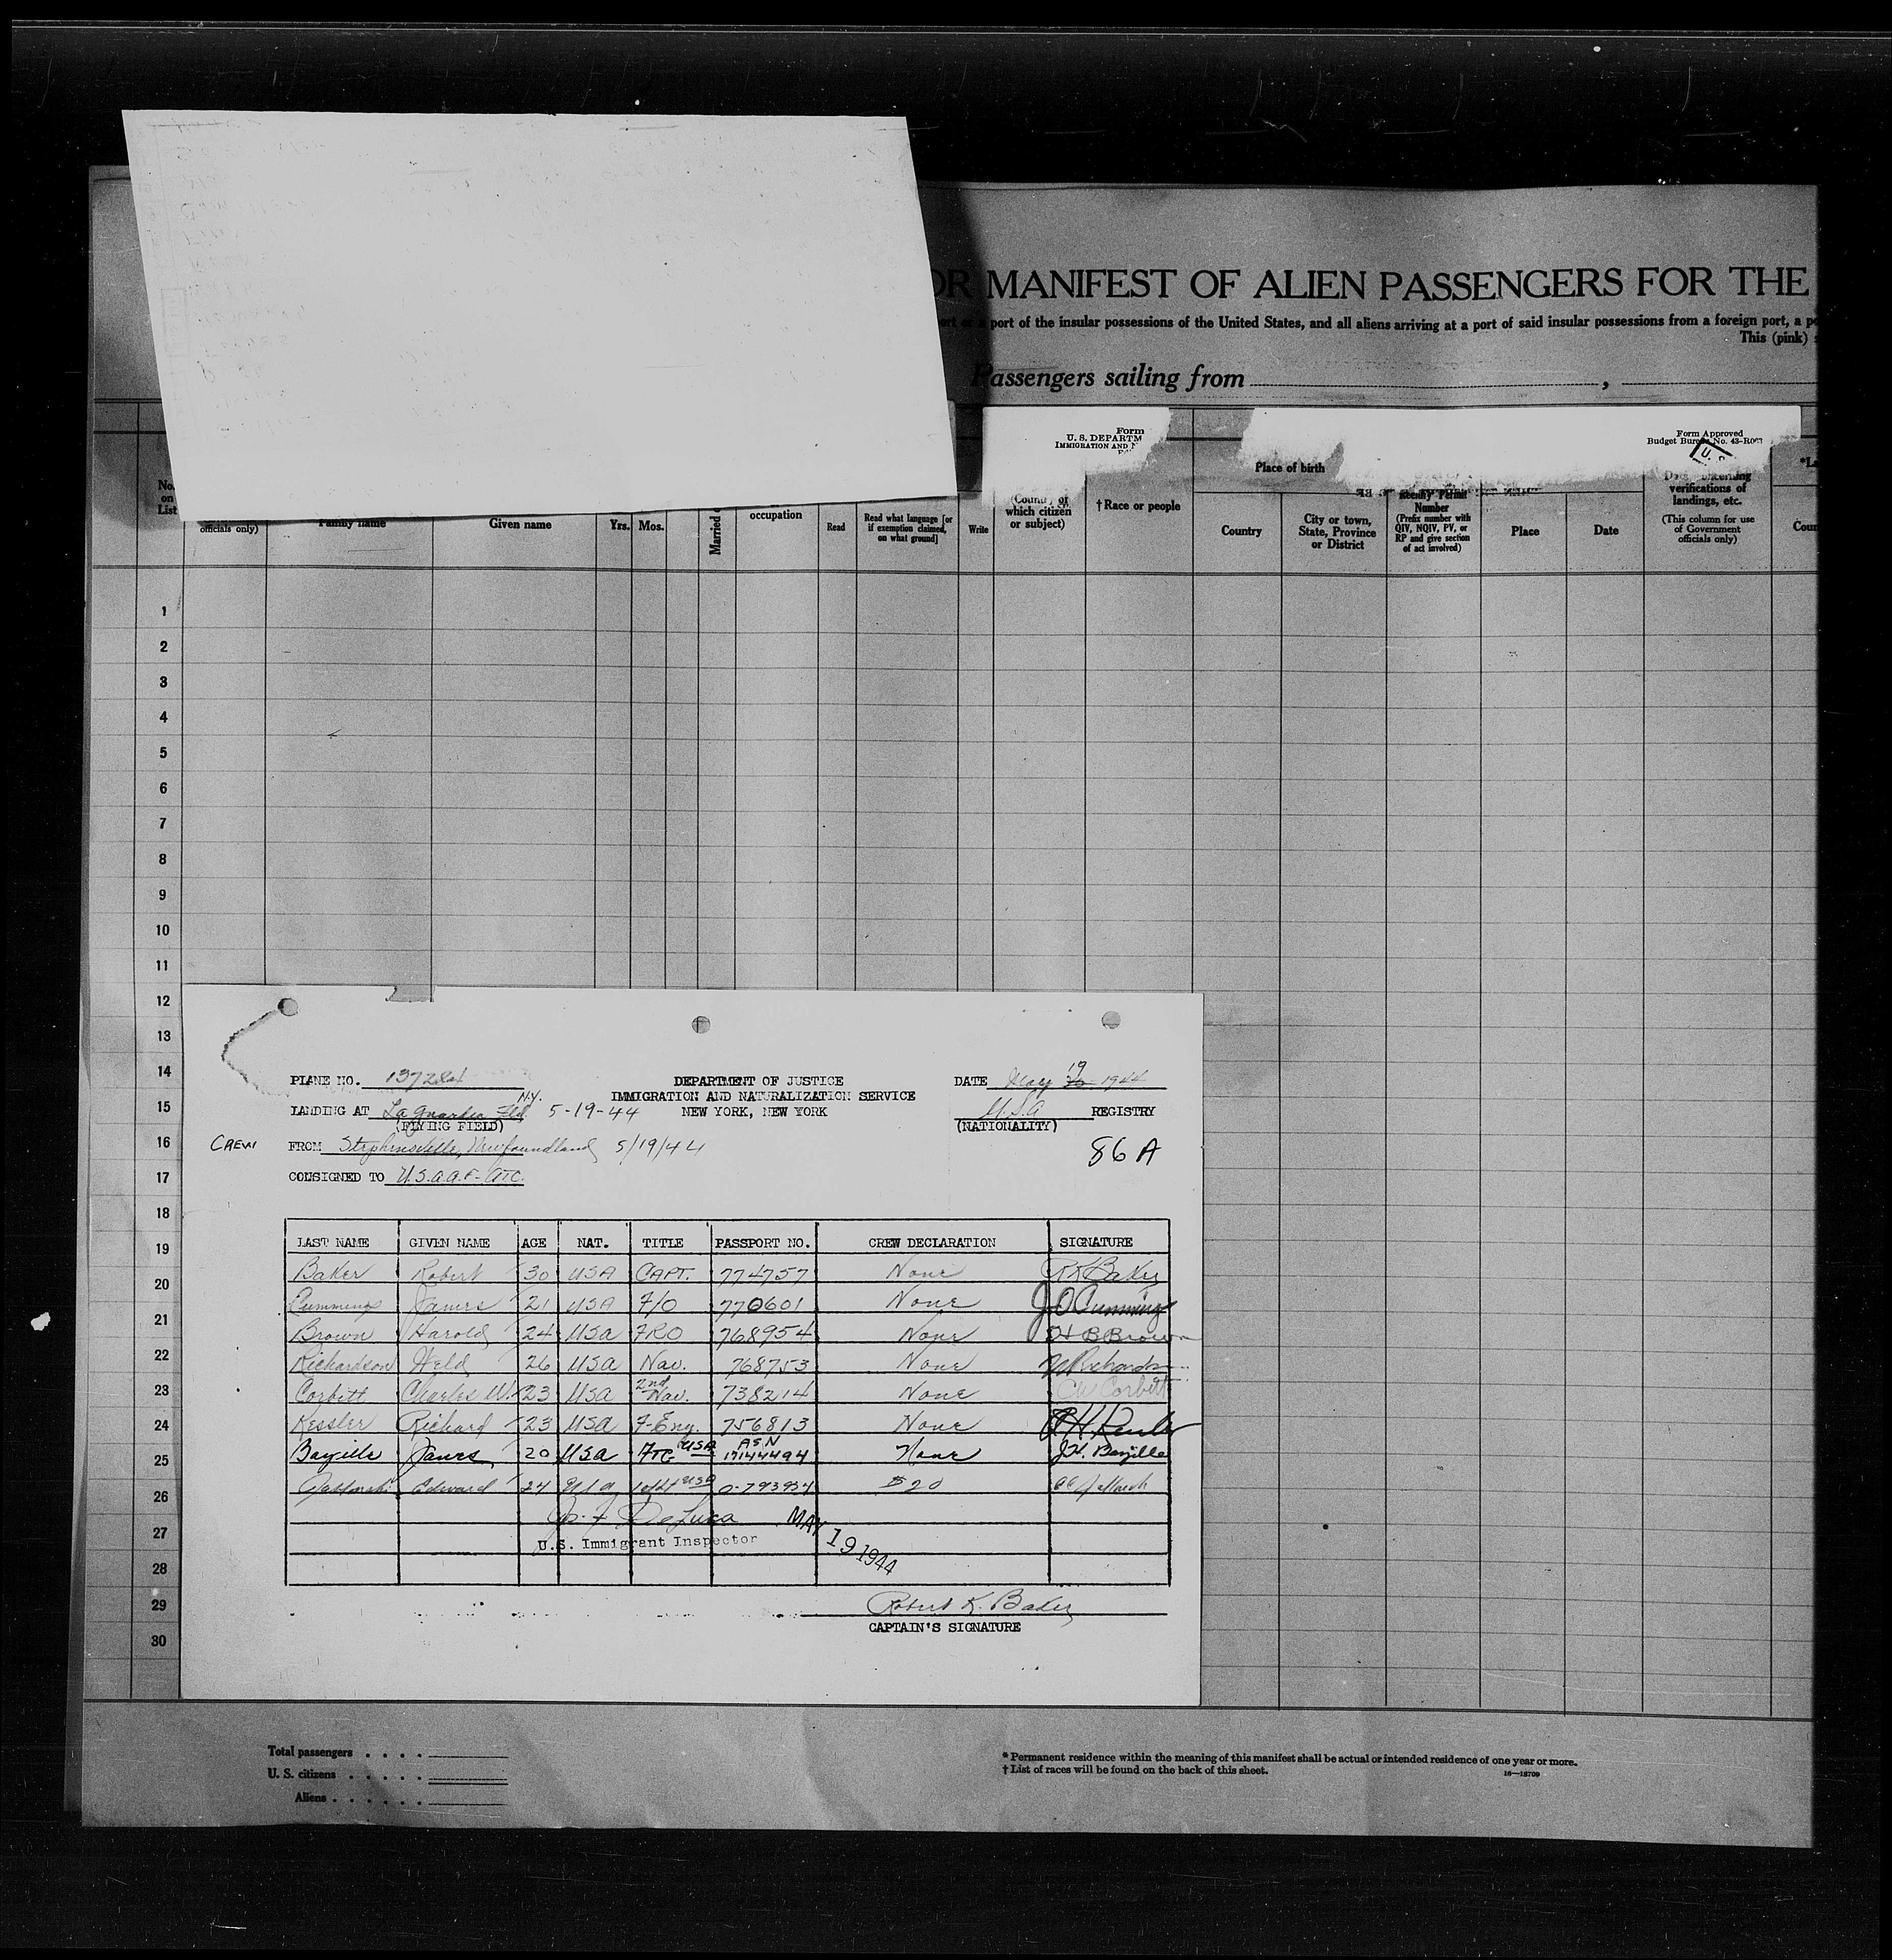 OR MANIFEST OF ALIEN PASSENGERS FOR THE
port of the insular possessions of the United States, and all aliens arriving at a port of said insular possessions from a foreign port, a
This (pink)
Passengers sailing from
Form
U. S. DEPARTM
IMMIGRATION AND
Form Approved
Budget Bureau No. 43-R063
U. S
Place of birth
No. on List
officials only)
Family name
Given name
Yrs.
Mos.
Married
occupation
Read
Read what language [or if exemption claimed, on what ground]
Write
(Country of which citizen or subject)
† Race or people
Country
City or town, State, Province or District
Reentry Permit Number
(Prefix number with QIV, NQIV, PV, or RP and give section of act involved)
Place
Date
verifications of landings, etc.
(This column for use of Government officials only)
1
2
3
4
5
6
7
8
9
10
11
12
13
14
15
16
17
18
19
20
21
22
23
24
25
26
27
28
29
30
PLANE NO.
DEPARTMENT OF JUSTICE
DATE May 19 1944
LANDING AT La Guardia Fld. N.Y. 5-19-44
IMMIGRATION AND NATURALIZATION SERVICE
NEW YORK, NEW YORK
U.S.A REGISTRY
(FLYING FIELD)
(NATIONALITY)
CREW
FROM Stephenville, Newfoundland 5/19/44
86 A
CONSIGNED TO U.S.A.A.F.- ATC.
LAST NAME GIVEN NAME AGE NAT. TITLE PASSPORT NO. CREW DECLARATION SIGNATURE
Baker Robert 30 USA CAPT. 774757 None RK Baker
Cummings James 21 USA F/O 770601 None J O Cummings
Brown Harold 24 USA FRO 768954 None H B Brown
Richardson Weld 26 USA Nav. 768753 None W Richardson
Corbitt Charles W. 23 USA 2nd Nav. 738214 None CW Corbitt
Kessler Richard 23 USA F-Eng. 756813 None
Bayille James 20 USA USA ASN 17144494 None J.H. Bayille
Edward 24 USA USA O-793934 $20
DeLuca
U.S. Immigrant Inspector
MAY 19 1944
Robert K. Baker
CAPTAIN'S SIGNATURE
Total passengers
U. S. citizens
Aliens
* Permanent residence within the meaning of this manifest shall be actual or intended residence of one year or more.
† List of races will be found on the back of this sheet.
16—18709